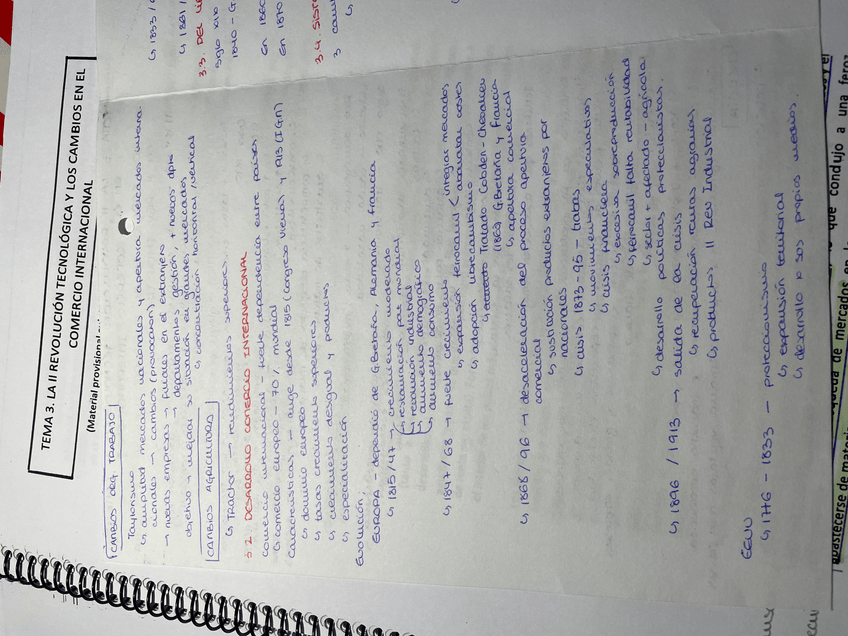 TEMA 3. LA II REVOLUCIÓN TECNOLÓGICA Y LOS CAMBIOS EN EL
COMERCIO INTERNACIONAL
(Material provisional
CAMBIOS ORG TRABAJO
Taylorismo
↳ amplitud mercados nacionales y apertura mercados
cionales → cambios (provocaron)
→ nuevas empresas → filiales en el extranjero
→ departamentos gestión, + nuevos dptos
objetivo → mejorar su situación en grandes mercados
↳ concentración horizontal/vertical
CAMBIOS AGRICULTURA
↳ Tractor → rendimientos superiores
3.2 DESARROLLO COMERCIO INTERNACIONAL
comercio internacional - fuerte dependencia entre países
↳ comercio europeo - 70% mundial
Características - auge desde 1815 (Congreso Viena) y 1913 (I GM)
↳ dominio europeo
↳ tasas crecimiento superiores
↳ crecimiento desigual y productos
↳ especialización
Evolución
EUROPA - dependió de G Bretaña, Alemania y Francia
↳ 1815/47 → crecimiento moderado
restauración paz mundial
revolución industrial
aumento demográfico
aumento consumo
↳ 1847/68 → fuerte crecimiento
↳ expansión ferrocarril < integrar mercados
abaratar costes
↳ adopción librecambismo
↳ Tratado Cobden-Chevalier
(1860) G Bretaña y Francia
↳ apertura comercial
↳ 1868/96 → desaceleración del proceso apertura
comercial
↳ sustitución productos extranjeros por
nacionales
↳ crisis 1873-95 - trabas
↳ movimientos especulativos
↳ crisis financiera
↳ excesiva sobreproducción
↳ ferrocarril falta rentabilidad
↳ sector + afectado - agrícola
↳ desarrollo políticas proteccionistas.
↳ 1896/1913 → salida de la crisis
↳ recuperación rentas agrarias
↳ productos II Rev Industrial
EEUU
↳ 1776 - 1833 - proteccionismo
↳ expansión territorial
↳ desarrollo → sus propios medios.
↳ 1833/
↳ 1861/
3.3. DEL
Siglo XIX
1840 - G
en 1860
En 1870
3.4. SIST
que condujo a una feroz
queda de mercados en
abastecerse de